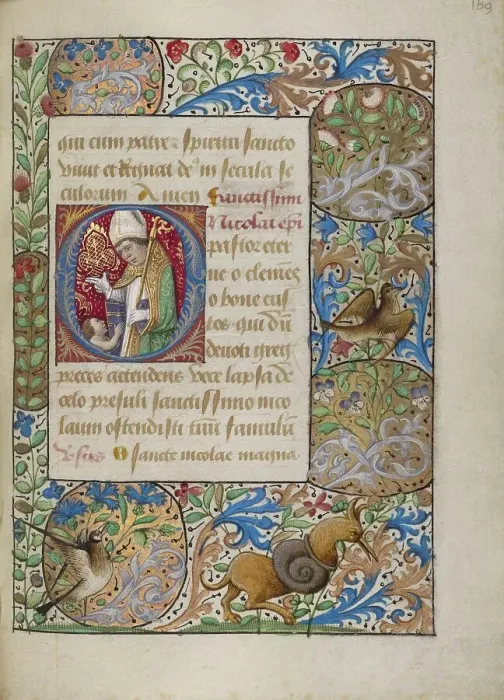 169
qui cum patre ⁊ spiritu sancto
viuit et Regnat de' in secula se
culorum Amen Sanctissim
Nicolai epi
O pastor eter
ne o clemēs
o bone cus
tos qui dū
deuoti gregꝭ
preces attendens voce lapsa de
celo presuli sanctissimo nico
laum ostendisti tuū famulū
v̄sus O sancte nicolae magna